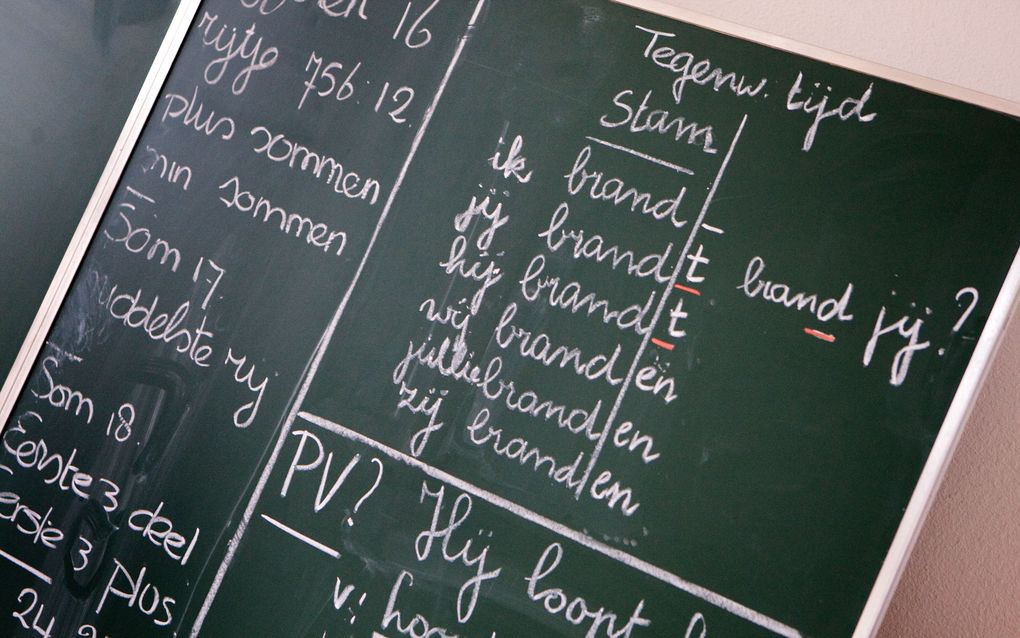 16
rijtje 756:12.
plus sommen
min sommen
Som 17.
middelste rij
Som 18.
Eerste 3 deel
eerste 3 plus
Tegenw. tijd
Stam
ik brand -
jij brand t brand jij?
hij brand t
wij brand en
jullie brand en
zij brand en
PV? Hij loopt
v: